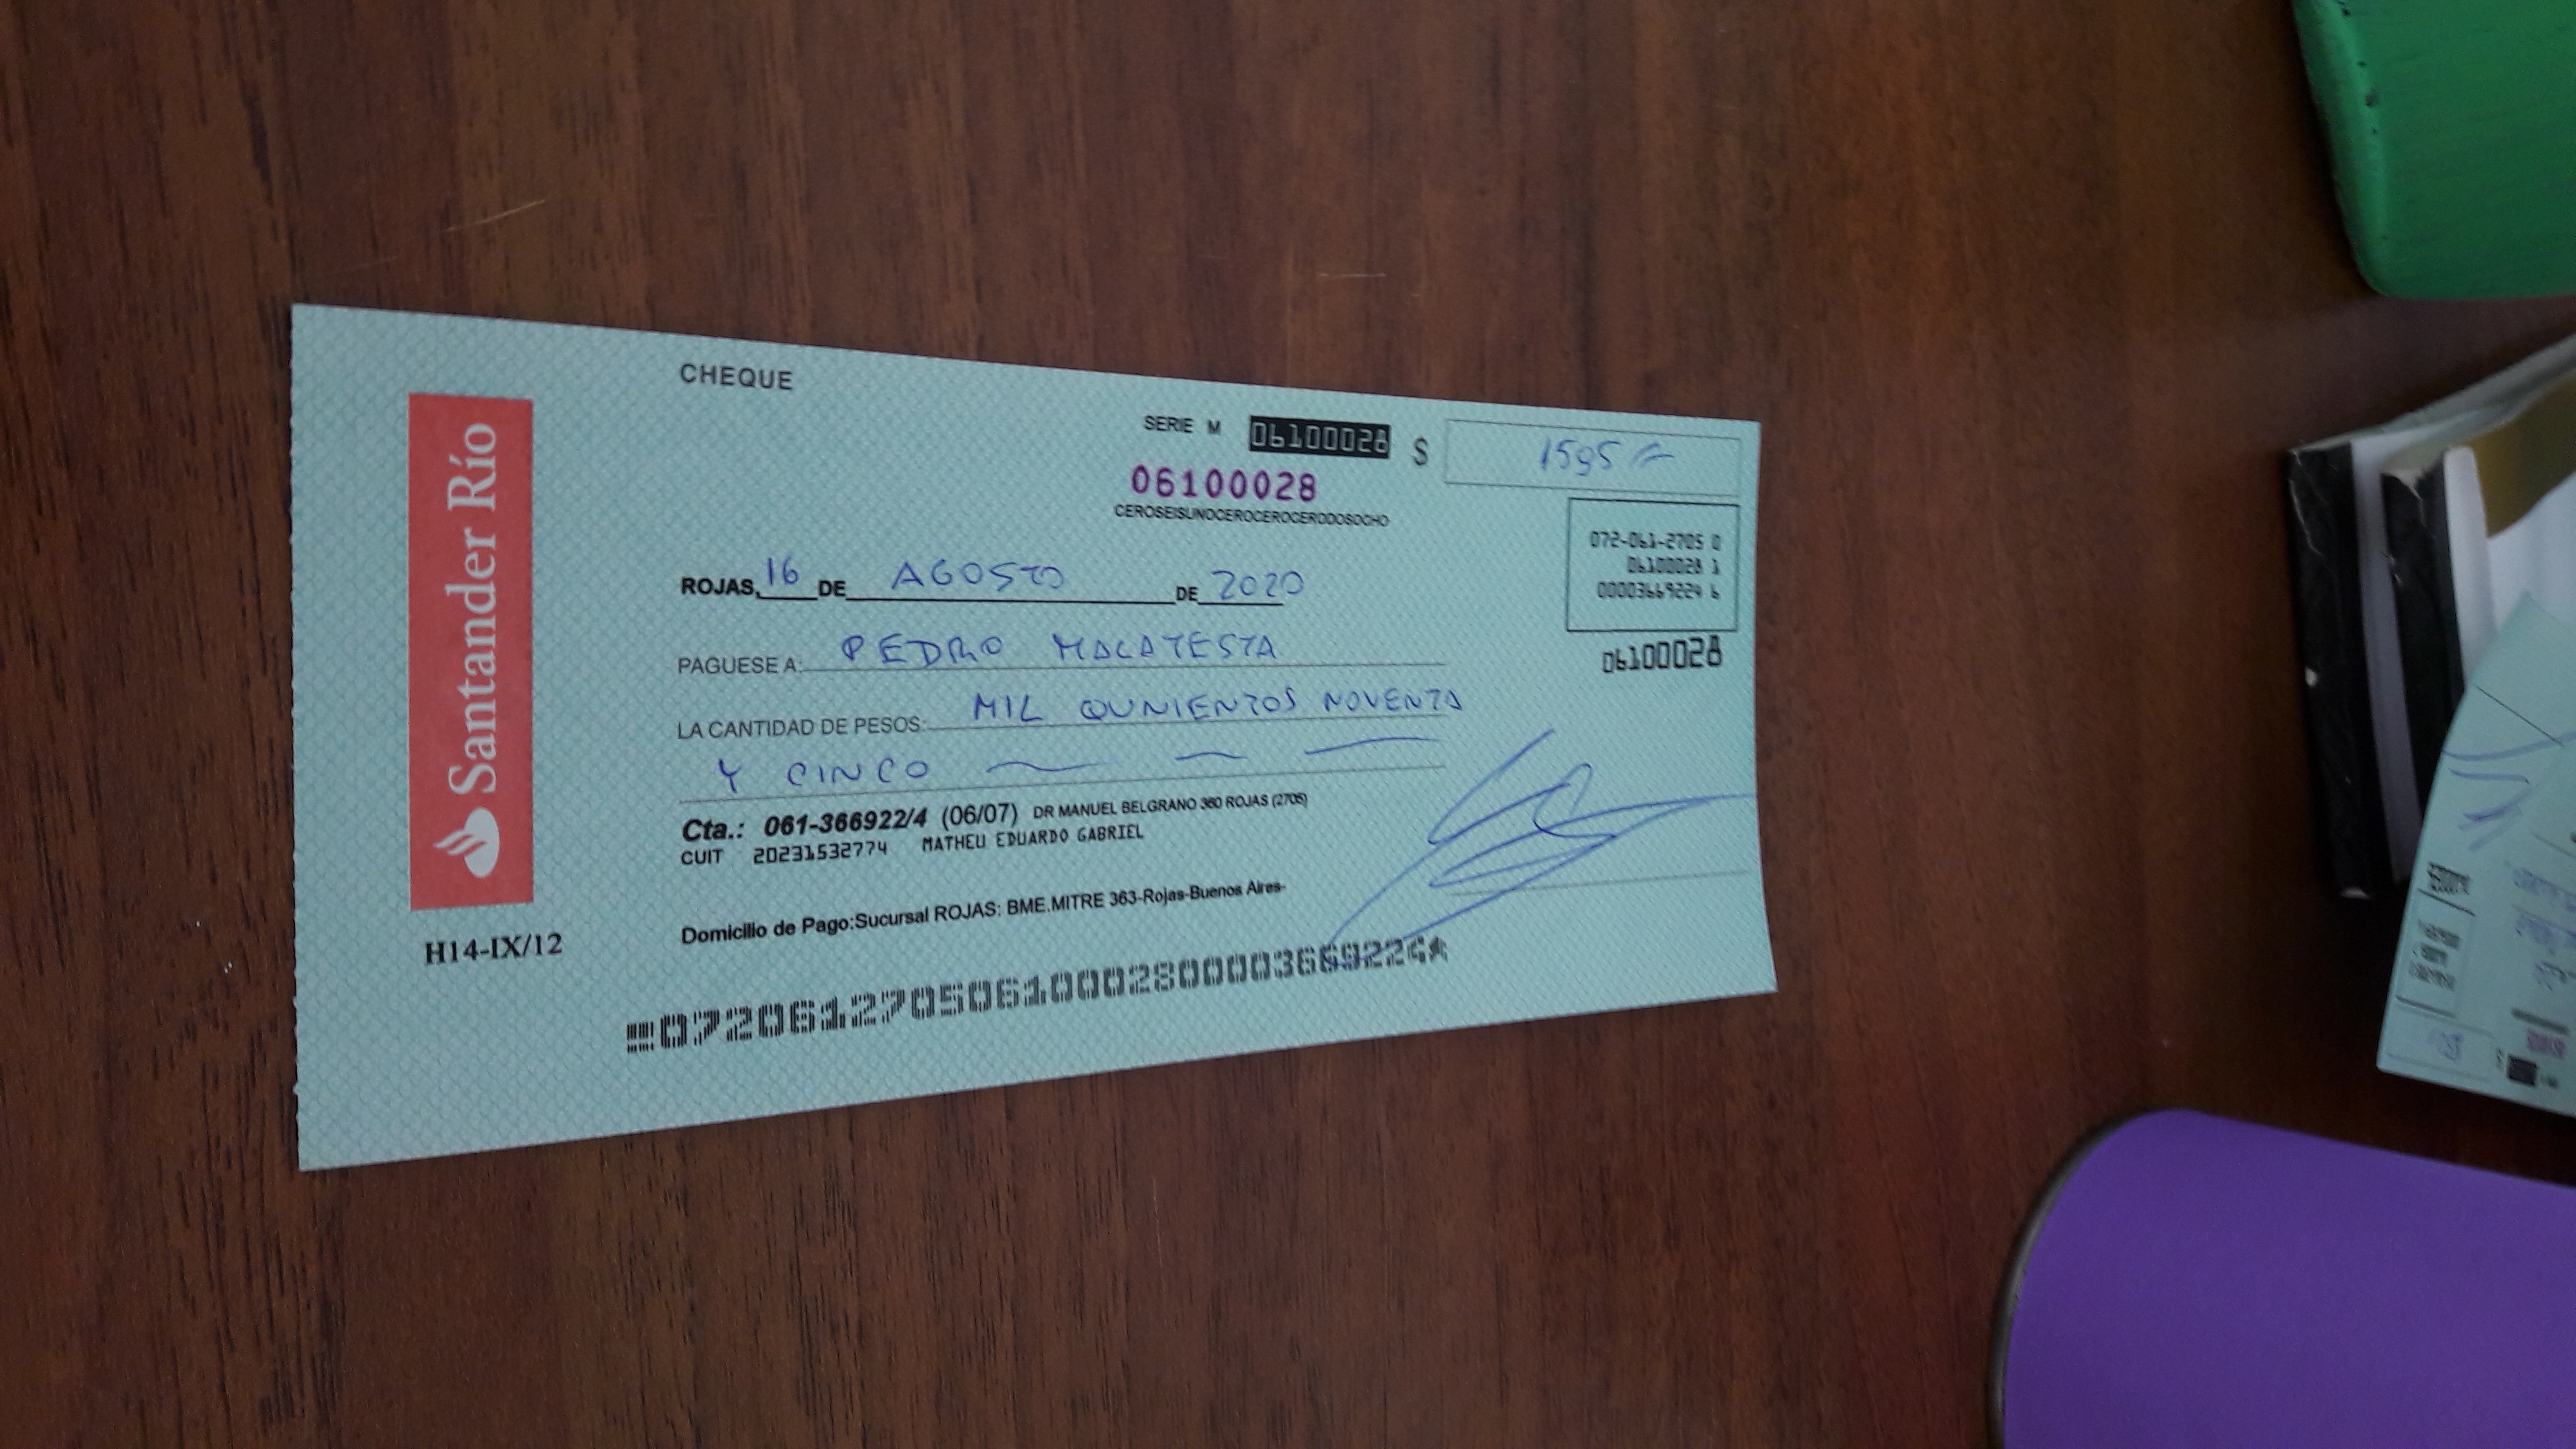 CHEQUE
Santander Río
H14-IX/12
SERIE M 06100028 $ 1595
06100028
CEROSEISUNOCEROCEROCERODOSOCHO
072-061-2705 0
06100028 1
00003669224 6
06100028
ROJAS, 16 DE AGOSTO DE 2020
PAGUESE A: PEDRO MALATESTA
LA CANTIDAD DE PESOS: MIL QUNIENTOS NOVENTA
Y CINCO
Cta.: 061-366922/4 (06/07) DR MANUEL BELGRANO 360 ROJAS (2705)
CUIT 20231532774 MATHEU EDUARDO GABRIEL
Domicilio de Pago:Sucursal ROJAS: BME.MITRE 363-Rojas-Buenos Aires-
07206127050610002800003669224